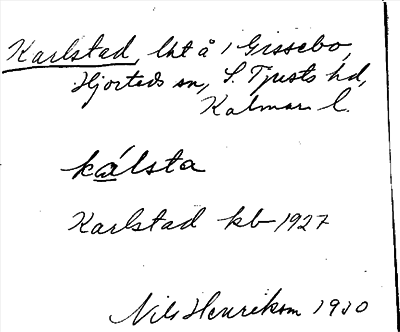 Karlstad, lht å 1 Gissebo,
Hjorteds sn, S. Tjusts hd,
Kalmar l.
kálsta
Karlstad kb 1927
Nils Henrikson 1930